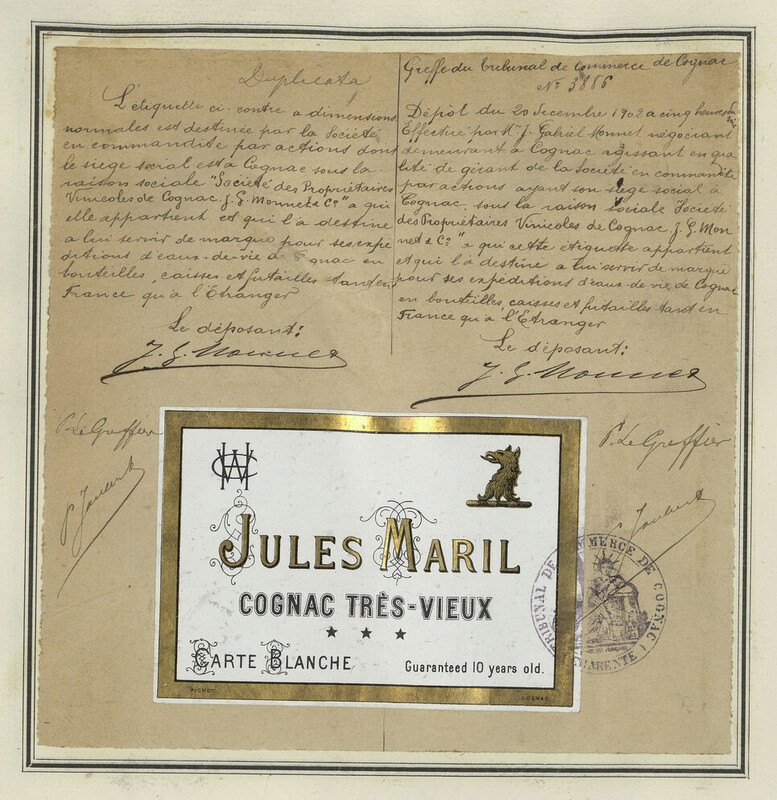 Duplicata
L'étiquette ci-contre a dimensions
normales est destinée par la Société
en commandite par actions dont
le siege social est à Cognac sous la
raison sociale "Société des Propriétaires
Vinicoles de Cognac J. G. Monnet & Cº" a qui
elle appartient est qui l'a destine
a lui servir de marque pour ses expé
ditions d'eaux-de-vie de Cognac en
bouteilles, caisses et futailles tant en
France qu'à l'Etranger
Le déposant:
J. G. Monnet
P. Le Greffier
Greffe du Tribunal de Commerce de Cognac
Nº 3886
Dépot du 20 decembre 1902 a cinq heures du
soir
Effectué par Mr J. Gabriel Monnet négociant
demeurant à Cognac agissant en qua
lité de gérant de la Société en commandite
par actions ayant son siege social à
Cognac, sous la raison sociale "Societé
des Propriétaires Vinicoles de Cognac J. G. Mon
net & Cº" a qui cette étiquette appartient
et qui l'a destine a lui servir de marque
pour ses expéditions d'eaux-de-vie de Cognac
en bouteilles, caisses et futailles tant en
France qu'a l'Etranger
Le déposant:
J. G. Monnet
P. Le Greffier
JULES MARIL
COGNAC TRÈS-VIEUX
CARTE BLANCHE
Guaranteed 10 years old.
PICHOT
COGNAC
TRIBUNAL DE COMMERCE DE COGNAC
CHARENTE